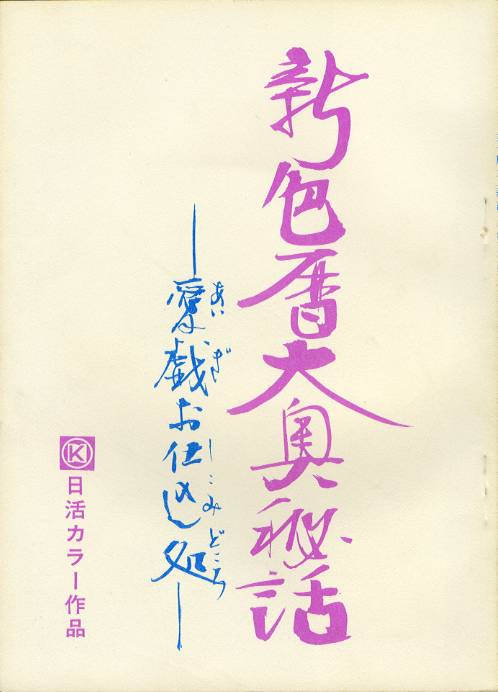 新色暦大奥秘話
―愛戯お仕込処―
あいぎ しこみどころ
K
日活カラー作品